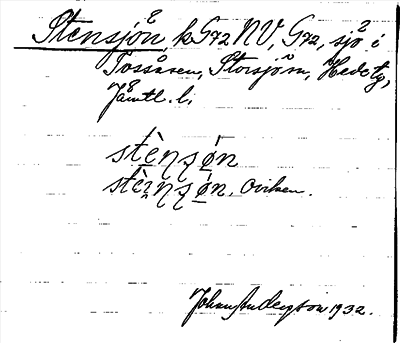 Stensjön, kG72NV, G72, sjö i
Tossåsen, Storsjöm, Hede tg,
Jämtl. l.
stèn̥ʂø̀n
stèn̥ʂø̀n. Oviken.
Johan Anderson 1932.